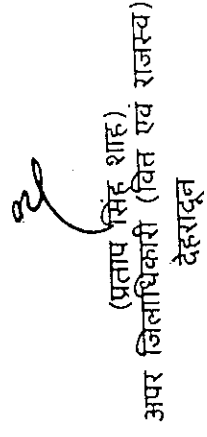 (प्रताप सिंह शाह)
अपर जिलाधिकारी (वित्त एवं राजस्व)
देहरादून